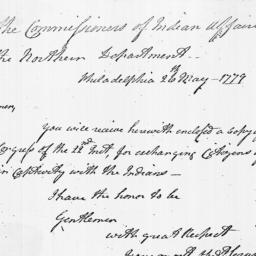 The Commissioners of Indian Affairs
the Northern Department
Philadelphia 26th May - 1779
you will receive herewith enclosed a Copy
Congress of the 22nd Inst, for exchanging Citizens
in Captivity with the Indians —
I have the honor to be
Gentlemen
with great Respect
your most